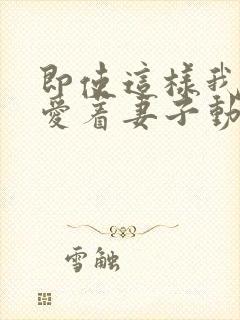 即使這樣我
愛着妻子動
雪触